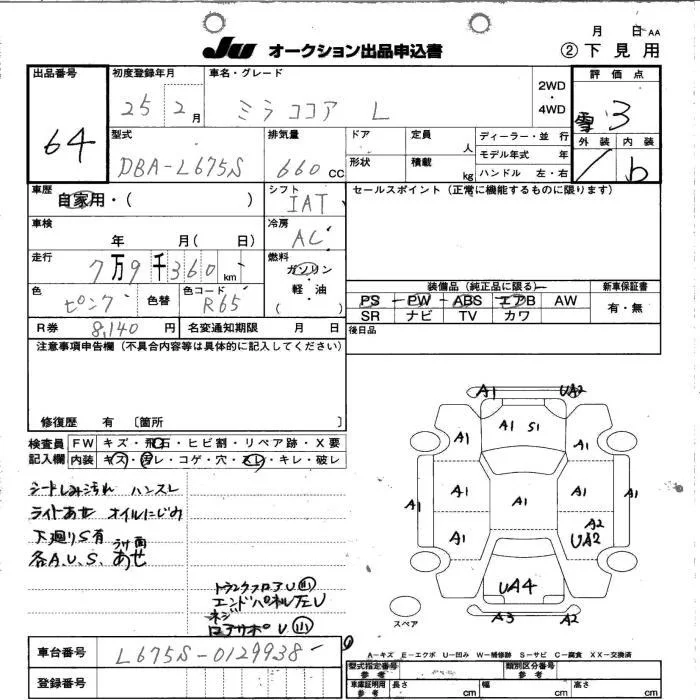 月 日 AA
JU オークション出品申込書 ② 下見用
出品番号 初度登録年月 車名・グレード 2WD・4WD 評価点
64 25 2月 ミラココア L 雪3
型式 排気量 ドア 定員 人 ディーラー・並行 外装 内装
DBA-L675S 660 CC 形状 積載 kg モデル年式 年 b
ハンドル 左・右
車歴 自家用・( ) シフト IAT セールスポイント(正常に機能するものに限ります)
車検 年 月( 日) 冷房 AC
走行 7万9千360km 燃料 ガソリン・軽油 ( )
色 ピンク 色替 色コード R65
装備品(純正品に限る) 新車保証書
PS PW ABS エアB AW 有・無
SR ナビ TV カワ
R券 8,140円 名変通知期限 月 日 後日品
注意事項申告欄(不具合内容等は具体的に記入してください)
修復歴 有 〔箇所 〕
検査員 FW キズ・飛石・ヒビ割・リペア跡・X要
記入欄 内装 キズ・汚レ・コゲ・穴・スレ・キレ・破レ
シートしみ汚れ ハンスレ
ライトあせ オイルにじみ
下廻りS有
各A.U.S. あせ
トランクフロアU
エンドパネル左U
ネジ
U
A1 UA2
A1 A1 S1 A1
A1 A1 A1 A1 A1
A1 A2
UA2
UA4
A3 A2
スペア
A-キズ E-エクボ U-凹み W-補修跡 S-サビ C-腐食 XX-交換済
車台番号 L675S-0129938
登録番号
型式指定番号 参考 類別区分番号 参考
車庫証明用 参考 長さ cm 幅 cm 高さ cm